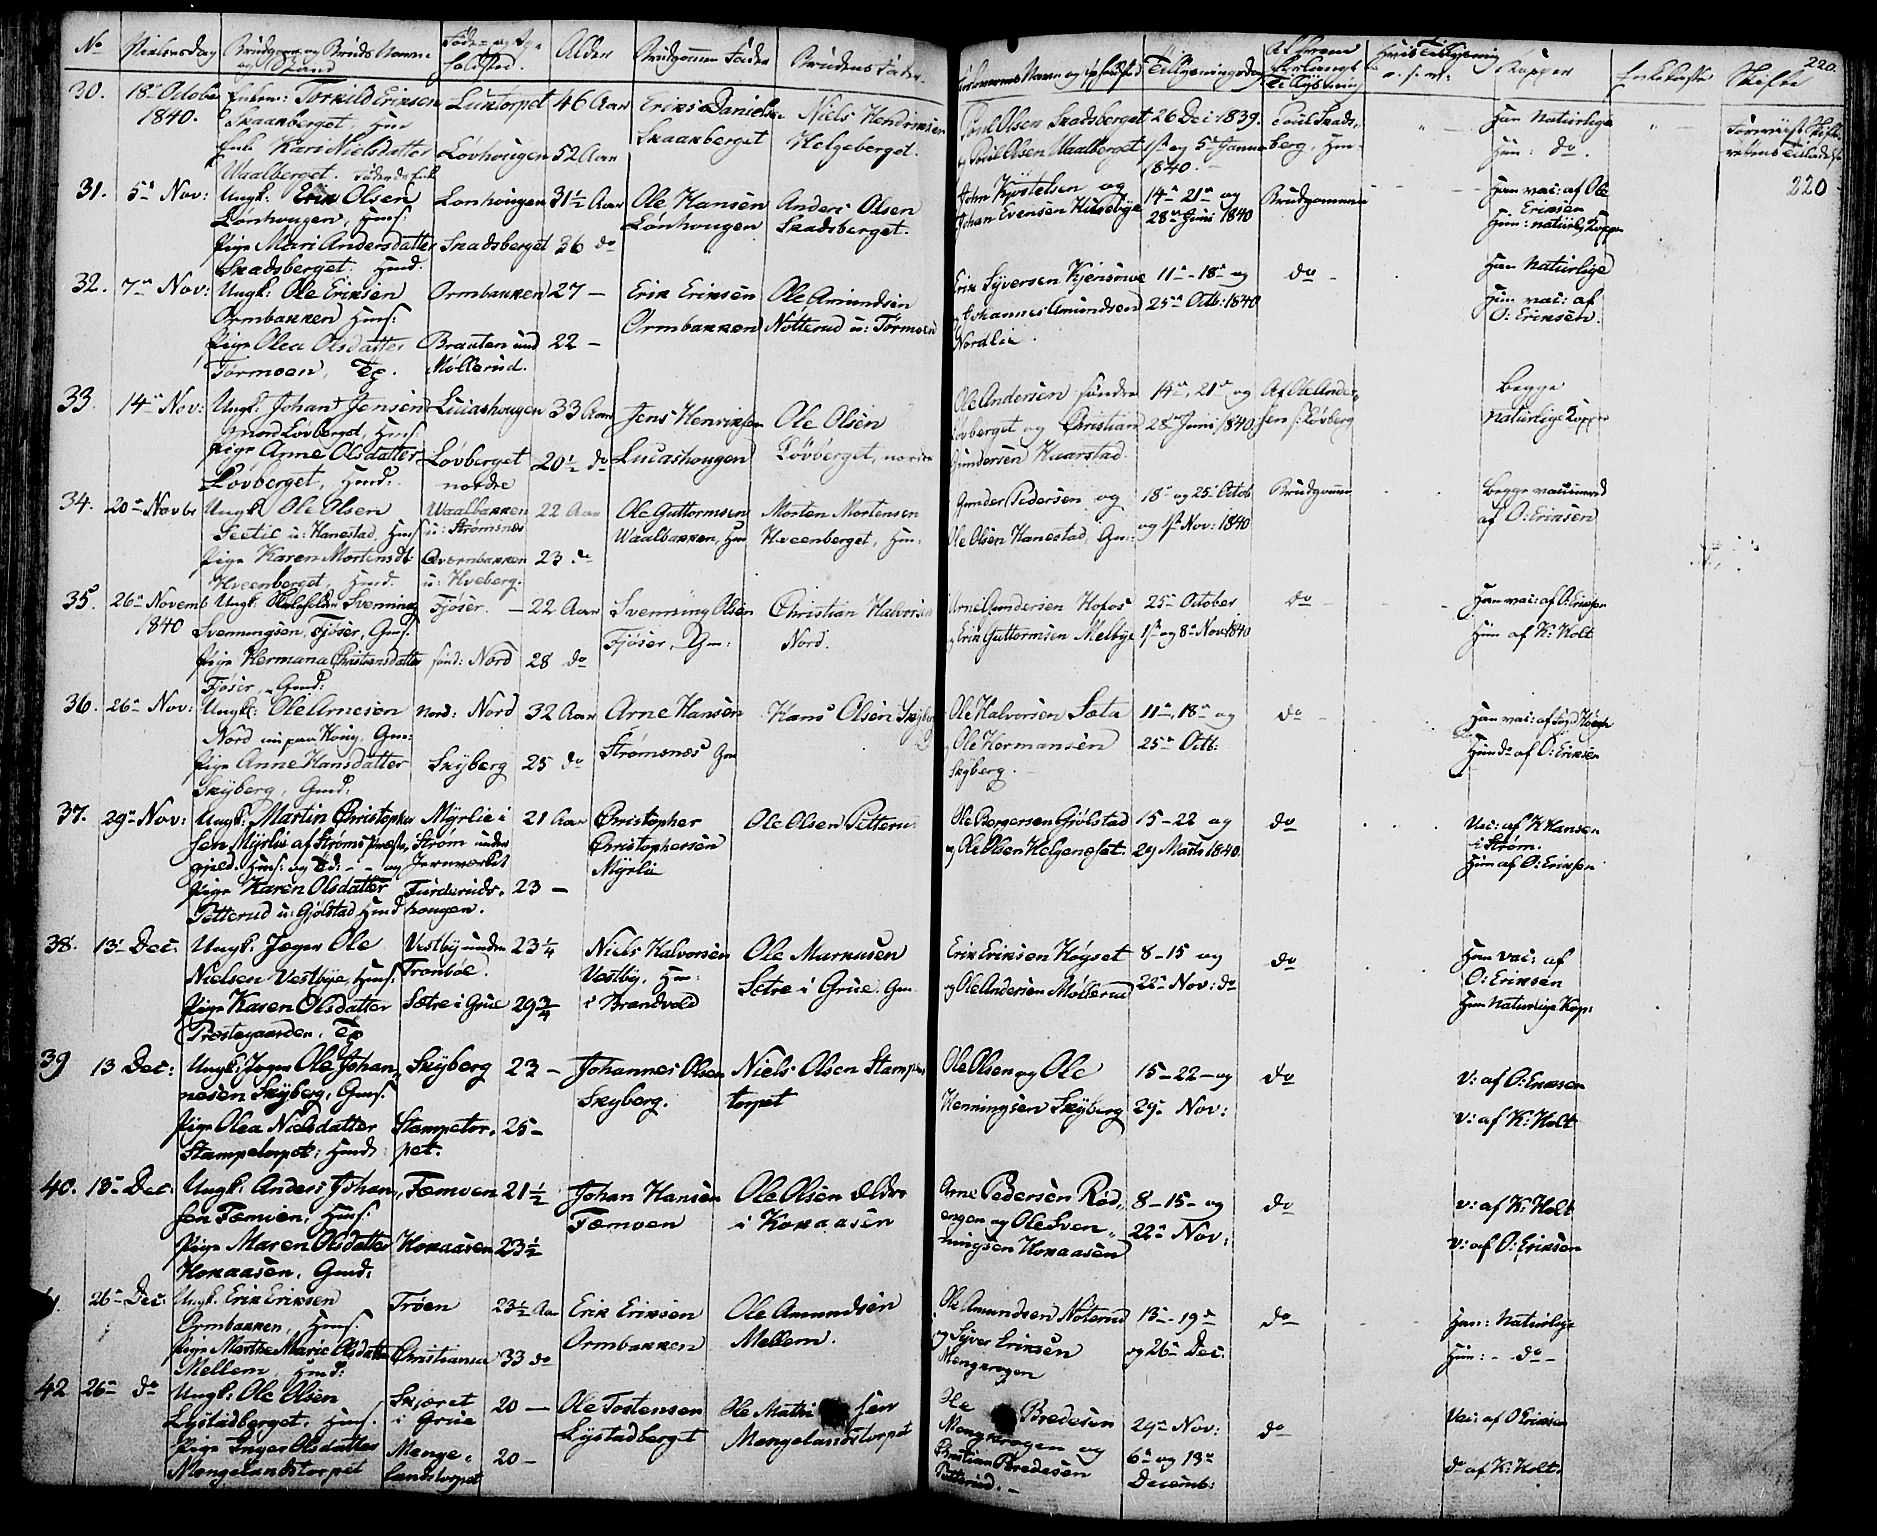 No Vielsesdag Brudgom og Bruds Navne og Stand Føde- og Opholdsted. Alder Brudgommens Fader Brudens Fader.
Forlovernes Navn og Opholdsted Tillysningsdag Af hvem forlangt Tillysning Kopper Enkekasse Skifte 220.
30. 18de Octobr 1840. Enkem: Torkild Eriksen Skaaraberget, Hm
Enke Kari Nielsdatter Waalberget.
Luktorpet 46 Aar
Lovhougen 52 Aar
Erik Danielsen Skaaraberget
Niels Hendriksen Helgeberget.
Poul Olsen Skadsberget og Poul Olsen Waalberget
26 Dec 1839. 1ste og 5te Januar 1840.
Poul Skadsberg, Hm.
Han Naturlige
Hun: do.
220
31. 5te Nov: Ungk: Erik Olsen Lønhougen, Husf.
Pige Mari Andersdatter Skadsberget. Husd.
Lonhougen 31½ Aar
Skadsberget 36 do
Ole Hansen Lønhougen
Anders Olsen Skadsberget.
Johan Evensen Hildebye
14de 21de og 28de Juni 1840
Brudgommen
Han vac: af Ole Eriksen
Hun: naturlig Kopper
32. 7de Nov: Ungk: Ole Eriksen Ormbakken Husf:
Pige Olea Olsdatter Tørmoen, Tg.
Ormbakken 27 —
Brauten und Møllerud. 22 —
Erik Eriksen Ormbakken
Ole Amundsen Nötterud u: Tørmoen
Erik Syversen Kjensmoe og Johannes Amundsen Nordlie
11te - 18de og 25de Octb: 1840
do -
Han Naturlige
Hun vac: af O: Eriksen.
33. 14de Nov: Ungk: Johan Jensen nord Lovberget, Husf:
Pige Anne Olsdatter Lovberget, Husd:
Lucashougen 33 Aar
Løvberget nordre 20½ do
Jens Henriksen Lucashougen
Ole Olsen Løvberget, nordre
Ole Andersen søndre Løvberget og Christian Gundersen Kaarstad
14de, 21de og 28de Juni 1840.
Af Ole Andersen s: Løvberg
Begge Naturlige Kopper
34. 20de Novbr Ungk: Ole Olsen Sætil u: Hanestad, Husf
Pige Karen Mortensdt Hveenberget, Husd.
Waalbakken u: Strømsnæs 22 Aar
Qværnbakken u: Hveberg. 23 do
Ole Guttormsen Waalbakken, Hm
Morten Mortensen Hveenberget, Hm:
Gunder Pedersen og Ole Olsen Hanestad, Gm:
18de og 25de Octob og 1ste Nov: 1840
Brudgommen
Begge vaccinered af O: Eriksen
35. 26de Novemb 1840 Ungk: Svenning Svenningsen, Fjøser, Gmsf.
Pige Hermana Christiansdatter Fjøser, Gmd:
Fjøser. — 22 Aar
sønd: Nord 28 do
Svenning Olsen Fjøser, Gm:
Christian Halvorsen Nord.
Arne Gundersen Hofos og Erik Guttormsen Melbye
25de October 1ste og 8de Nov: 1840
do -
Han vac: af O: Eriksen
Hun af K: Holt
36. 26de Nov: Ungk: Ole Arnesen Nord nu paa Kong. Gm:
Pige Anne Hansdatter Skyberg, Gmd:
Nord: Nord 32 Aar
Skyberg 25 do
Arne Hansen Strømsnæs Gm
Hans Olsen Skyberg
Ole Halvorsen Sæta og Ole Hermansen Skyberg.
11te, 18de og 25de Octb:
do
Hun do af O: Eriksen
37. 29de Nov: Ungk: Martin Christophersen Myrlie af Strøms Præstegjeld. Husf: og
Pige Karen Olsdatter Petterud u: Gjölstad Husd
Myrlie i Strøm under Jernværket 21 Aar
Furderudshougen. 23 —
Christopher Christophersen Myrlie
Ole Olsen Petterud
Ole Børgersen Gjølstad og Ole Olsen Helgenæset.
15-22 og 29 Marts 1840.
do
Vac: af K Hansen i Strøm.
Hun af O: Eriksen
38. 13de Dec: Ungk: Jæger Ole Nielsen Vestbye, Husf.
Pige Karen Olsdatter Præstegaarden, Tg
Vestby under Tronbøl. 23¼
Sætre i Grue 29¾
Niels Halvorsen Vestby, Hm: i Brandvold
Ole Markusen Sætre i Grue Gm
Erik Eriksen Høyset og Ole Andersen Møllerud
8-15 og 22de Nov: do
do
Han vac: af O: Eriksen
Hun Naturlige Kop:
39 13 Dec: Ungk: Jæger Ole Johannesen Skyberg, Gmsf.
Pige Olea Nielsdatter Stampetorpet, Husd:
Skyberg 23 —
Stampetorpet. 25 —
Johannes Olsen Skyberg.
Niels Olsen Stampetorpet
Ole Olsen og Ole Henningsen Skyberg
15-22- og 29de Nov:
do
V: af O: Eriksen
V: af K: Holt
40. 13de Dec: Ungk: Anders Johansen Tæmoen, Husf:
Pige Maren Olsdatter Kokaasen, Gmd:
Tæmoen 21½
Kokaasen 23½
Johan Hansen Tæmoen
Ole Olsen Ældre i Kokaasen
Arne Pedersen Rødengen og Ole Svenningsen Kokaasen
8-15- og 22de Nov:
do
V: af K: Holt
V: af O: Eriksen
26de Dec: Ungk. Erik Eriksen Ormbakken, Husf.
Pige Marthe Marie Olsdatter Mellem Husd:
Trøen 23½ Aar
Christiania 33 do
Erik Eriksen Ormbakken
Ole Amundsen Mellem.
Ole Amundsen Noterud og Syver Eriksen Mengkrogen
13de - 19de og 26de Dec:
do
Han: Naturlige
Hun: - do -
42 26de do Ungk: Ole Olsen Lystadberget. Husf.
Pige Inger Olsdatter Mengelandstorpet
Skjæret i Grue 20 —
Mengelandstorpet 20 —
Ole Tostensen Lystadberget
Ole Mathisen Mengelandstorpet
Ole Bredesen Mengkrogen og Christian Bredesen Petterud. —
29de Nov: 6te og 13de Decemb:
do
Vac: af O Eriksen
do af K: Holt.